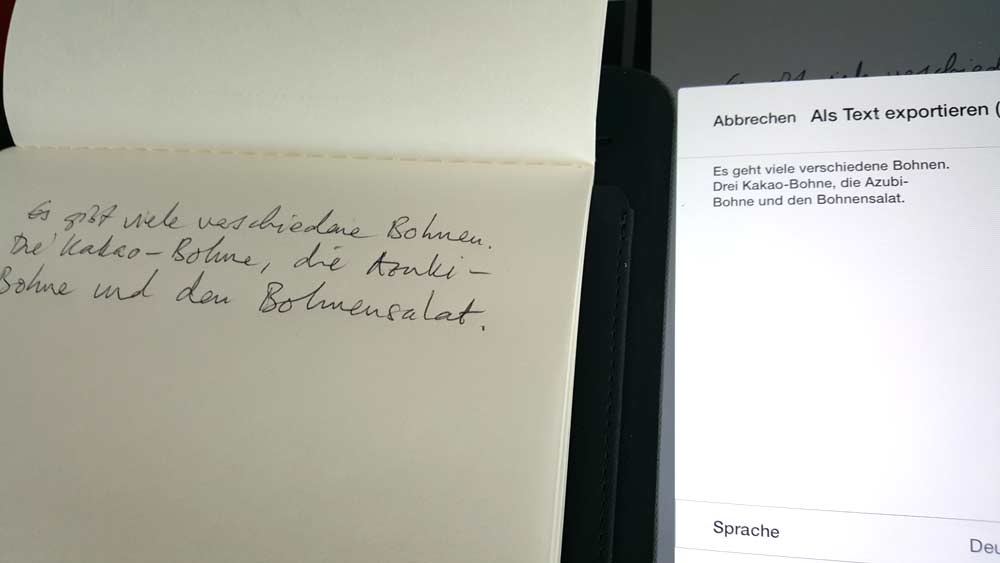 Es gibt viele verschiedene Bohnen.
Die Kakao-Bohne, die Azuki-
Bohne und den Bohnensalat.
Abbrechen Als Text exportieren (
Es geht viele verschiedene Bohnen.
Drei Kakao-Bohne, die Azubi-
Bohne und den Bohnensalat.
Sprache
Deu